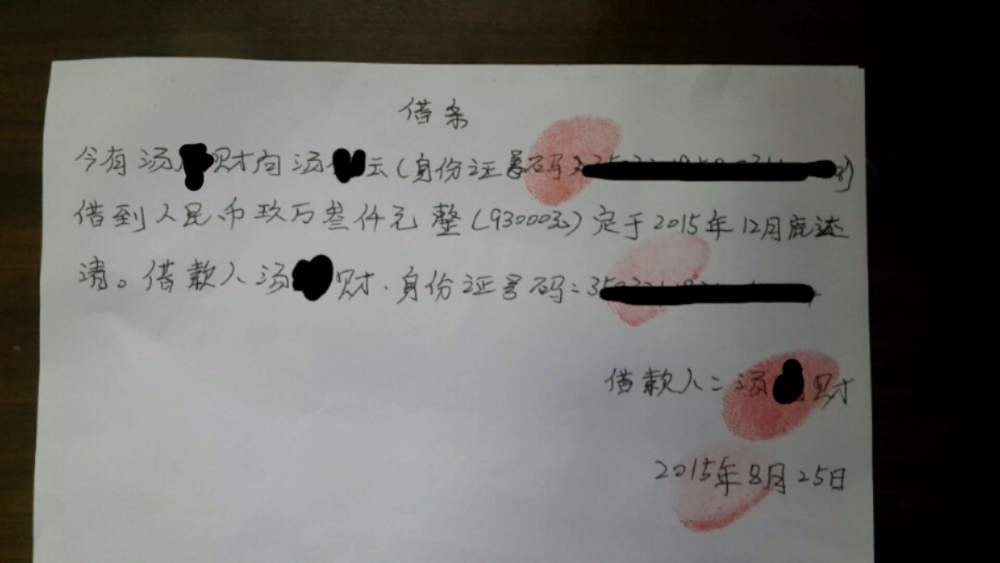 借条
今有汤财向汤云(身份证号码:
借到人民币玖万叁仟元整(93000元)定于2015年12月底还
清。借款人汤财.身份证号码:35
借款人:汤财
2015年8月25日